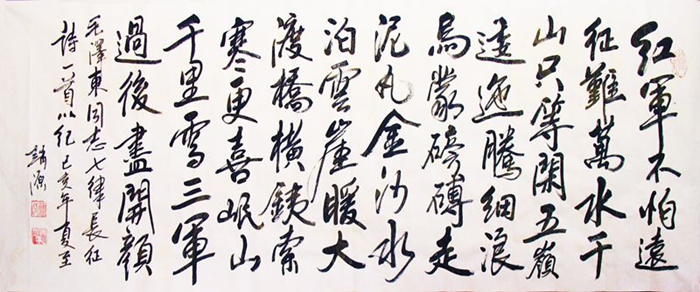 紅軍不怕遠
征難萬水千
山只等閑五嶺
逶迤騰細浪
烏蒙磅礴走
泥丸金沙水
泊雲崖暖大
渡橋橫銕索
寒更喜岷山
千里雪三軍
過後盡開顏
毛澤東同志七律長征
詩一首以紀己亥年夏至
源